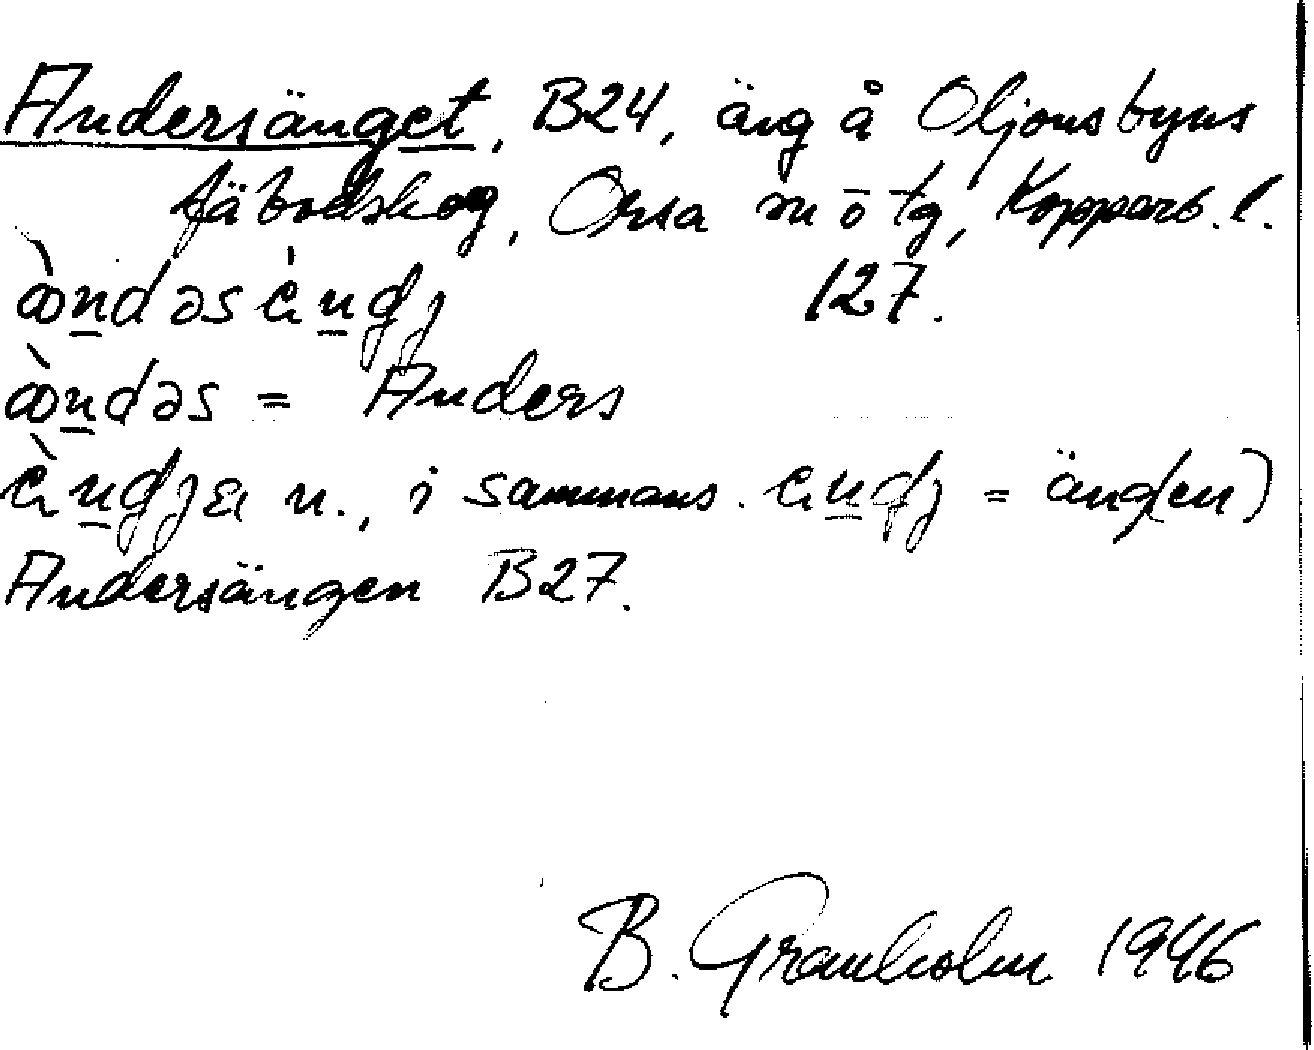 Andersänget, B24, äng å Oljonsbyns
fäbodskog, Orsa s n o tg, Kopparb. l.
127.
= Anders
n., i sammans. = äng(en)
Andersängen B27.
B. Granholm 1946